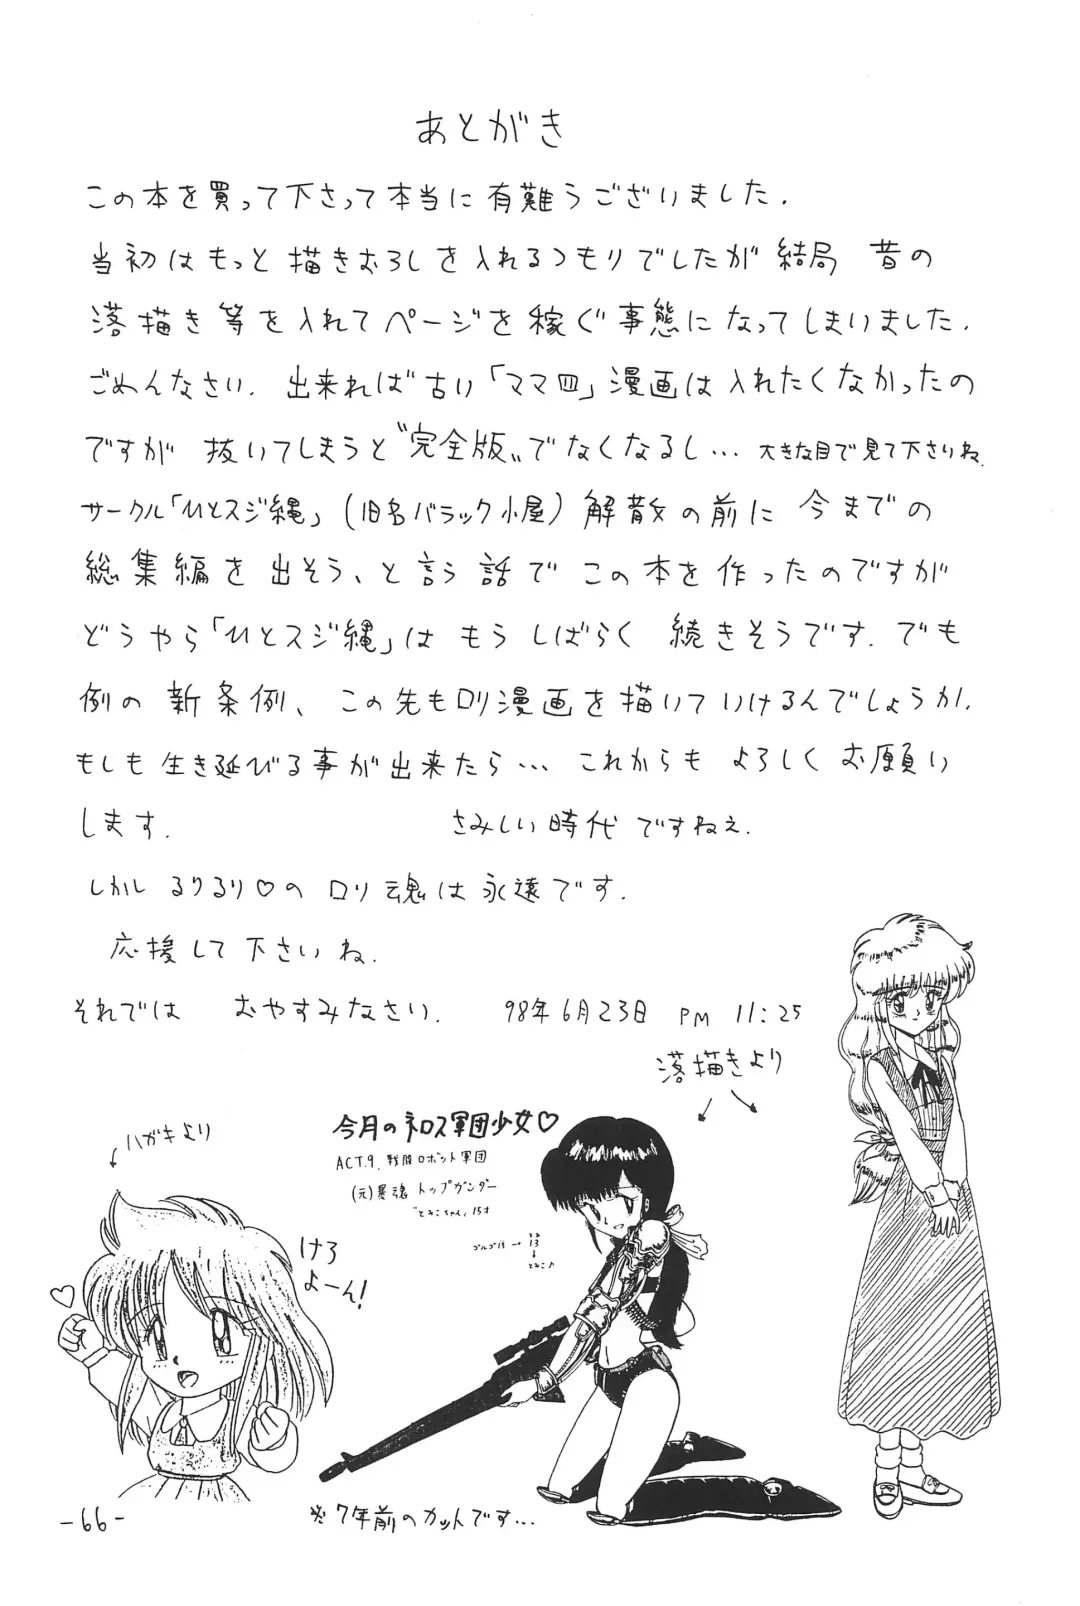 あとがき
この本を買って下さって本当に有難うございました.
当初はもっと描きおろしを入れるつもりでしたが結局 昔の
落描き等を入れてページを稼ぐ事態になってしまいました.
ごめんなさい. 出来れば古い「ママ四」漫画は入れたくなかったの
ですが 抜いてしまうと“完全版„でなくなるし… 大きな目で見て下さいね.
サークル「ひとスジ縄」(旧名バラック小屋) 解散の前に 今までの
総集編を出そう、と言う話でこの本を作ったのですが
どうやら「ひとスジ縄」はもうしばらく 続きそうです. でも
例の新条例、この先もロリ漫画を描いていけるんでしょうか.
もしも生き延びる事が出来たら… これからもよろしくお願い
します. さみしい時代ですねぇ.
しかし るりるり♡の ロリ魂は永遠です.
応援して下さいね.
それでは おやすみなさい. 98年6月23日 PM 11:25
落描きより
ハガキより
今月のネロス軍団少女♡
ACT.9. 戦闘ロボット軍団
(元)暴魂 トップガンダー
“とみこちゃん„ 15才
ゴルゴ13 → 13
↓
とみこ♪
けろ
よーん!
※7年前のカットです…
-66-